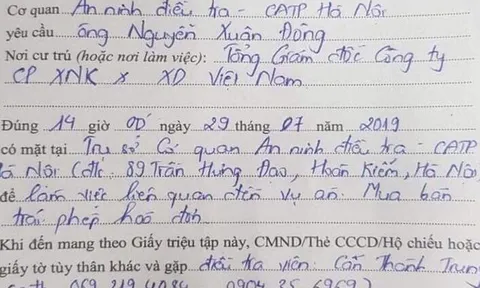 Cơ quan An ninh điều tra - CATP Hà Nội
yêu cầu ông Nguyễn Xuân Đông
Nơi cư trú (hoặc nơi làm việc): Tổng Giám đốc Công ty
CP XNK x XD Việt Nam
Đúng 14 giờ 00 ngày 29 tháng 07 năm 2019
có mặt tại Trụ sở Cơ quan An ninh điều tra - CATP
Hà Nội (đ/c: 89 Trần Hưng Đạo, Hoàn Kiếm, Hà Nội
để làm việc liên quan đến vụ án. Mua bán
trái phép hoá đơn
Khi đến mang theo Giấy triệu tập này, CMND/Thẻ CCCD/Hộ chiếu hoặc
giấy tờ tùy thân khác và gặp điều tra viên: Cấn Thành Trung